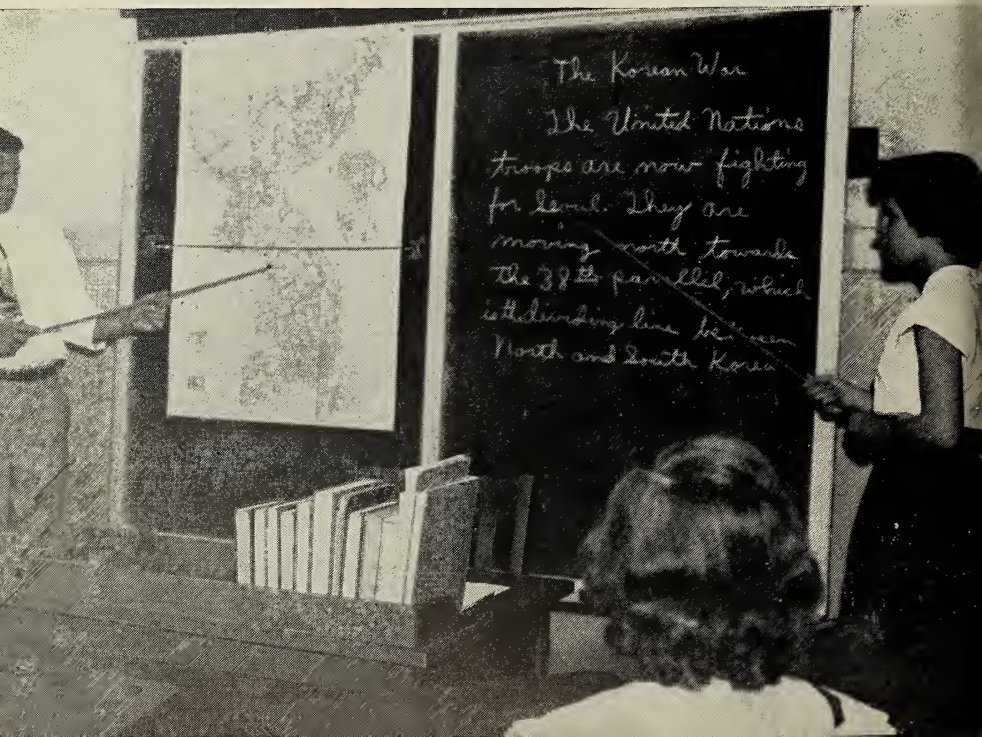 The Korean War
The United Nations
troops are now fighting
for Seoul. They are
moving north towards
the 38th parallel, which
is the dividing line between
North and South Korea
38